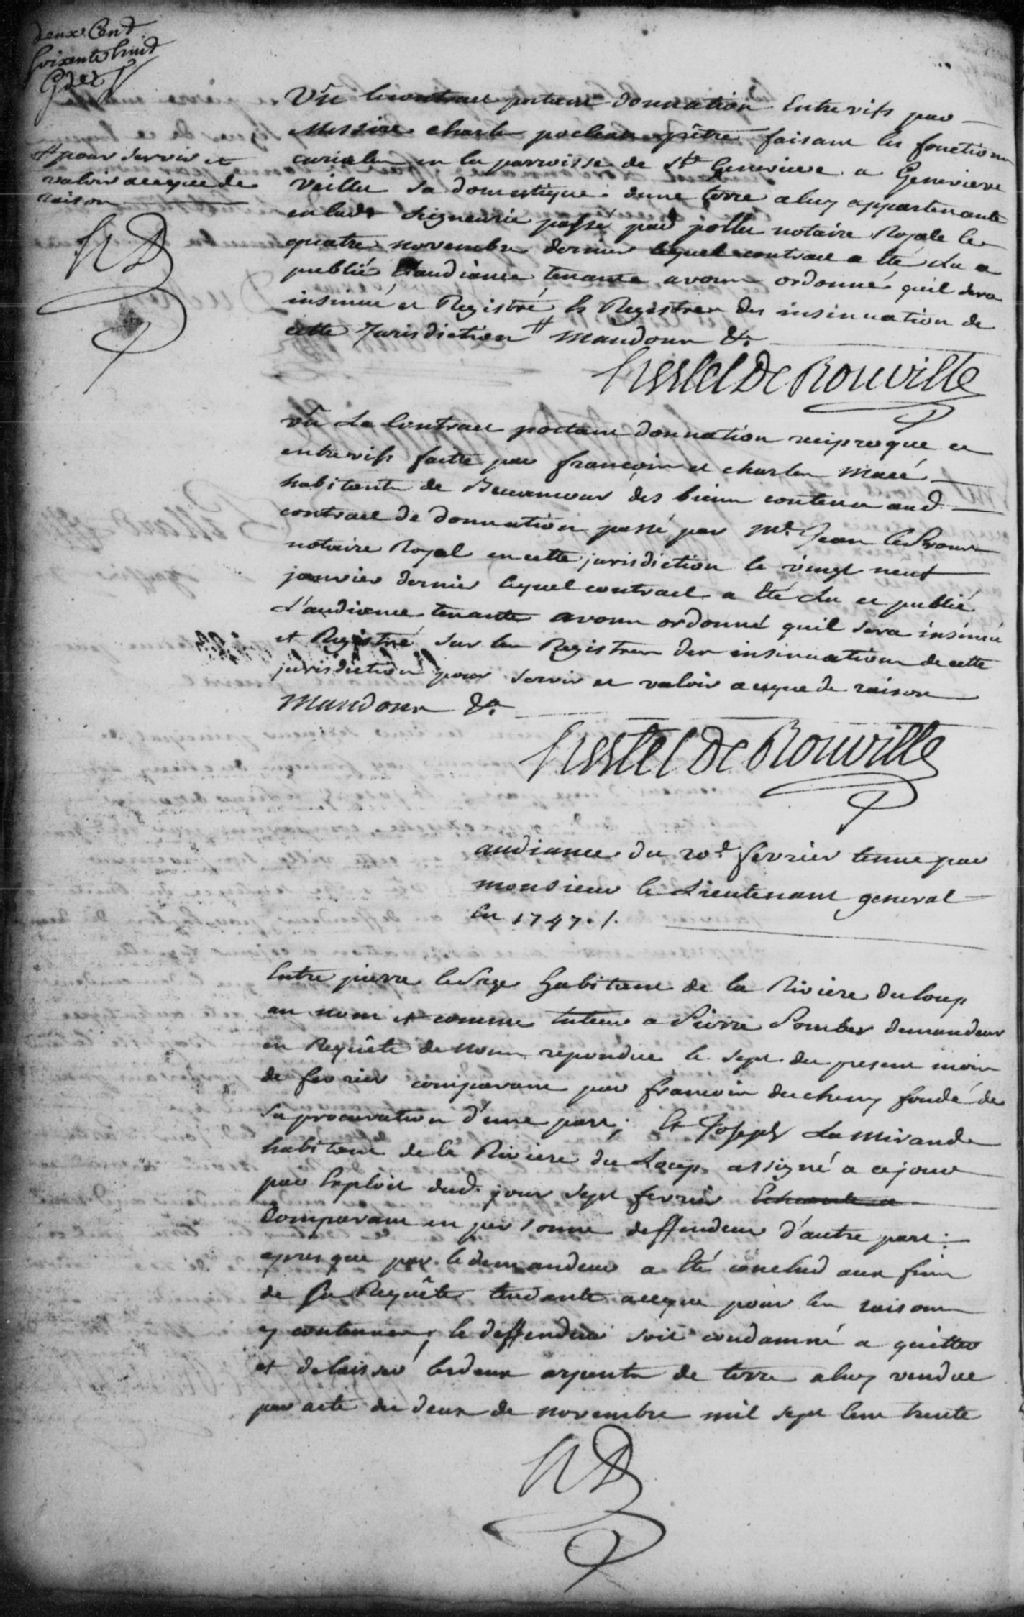 deux Cent
soixante huit
# pour servir et
valoir aceque de
raison
HD
Vû le contract portant donnation Entre vifs par
Messire charle pocleau prêtre faisant les fonction
curiale en la parroisse de Ste Genevieve a Genevieve
Veillet sa domestique d'une terre a luy appartenante
en lad Seigneurie passé par pollet notaire Royale le
quatre novembre dernier lequel contract a eté lu et
publié L'audiance tenante avons ordonné qu'il sera
insinué et Registré Es Registres des insinuation de
cette Jurisdiction # Mandons &a
Hertel De Rouville
Vû Le Contract portant donnation reciproque et
entrevifs faitte par francois et charles Macé
habitants de Becancour des biens contenu aud
contract de donnation passé par Me Jean le Proust
notaire Royal en cette jurisdiction le vingt neuf
janvier dernier lequel contract a eté lu et publié
L'audiance tenante avons ordonné qu'il sera insinué
et Registré sur les Registres des insinuations de cette
jurisdiction pour servir et valoir aceque de raison
Mandons &a
Hertel De Rouville
audiance du 20e fevrier tenue par
monsieur le Lieutenant general
En 1747 ./.
Entre pierre leSage habitant de la Riviere du loup
au nom et comme tuteur a Pierre demandeur
en Requête de nous repondue le sept du present mois
de fevrier comparant par francois ducheny fondé de
sa procuration d'une part; Et Joseph La Mirande
habitant de la Riviere du Loup assigné a ce jour
par Exploit dud. jour sept fevrier
Comparant en personne deffendeur d'autre part:
apres que par le demandeur a eté conclud aux fins
de sa Requête tendante aceque pour les raisons
y contenues, le deffendeur soit condamné a quitter
et delaissé les deux arpents de terre a luy vendue
par acte du deux de novembre mil sept Cent trente
HD